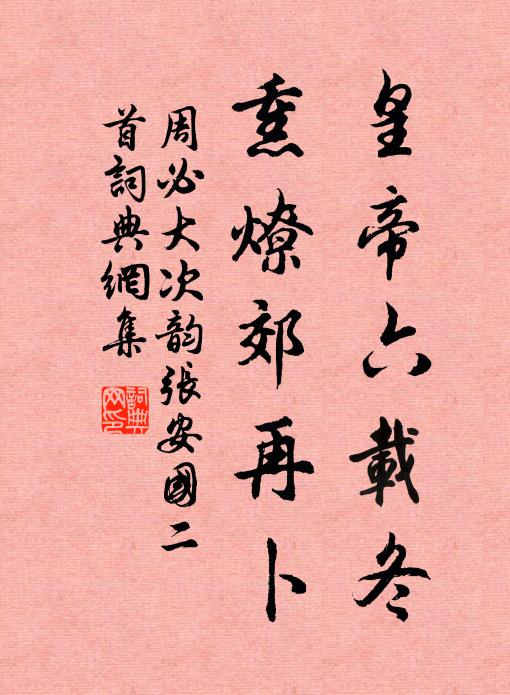 皇帝六載冬
熏燎郊再卜
周必大次韵張安國二
首詞典網集
詞典网印